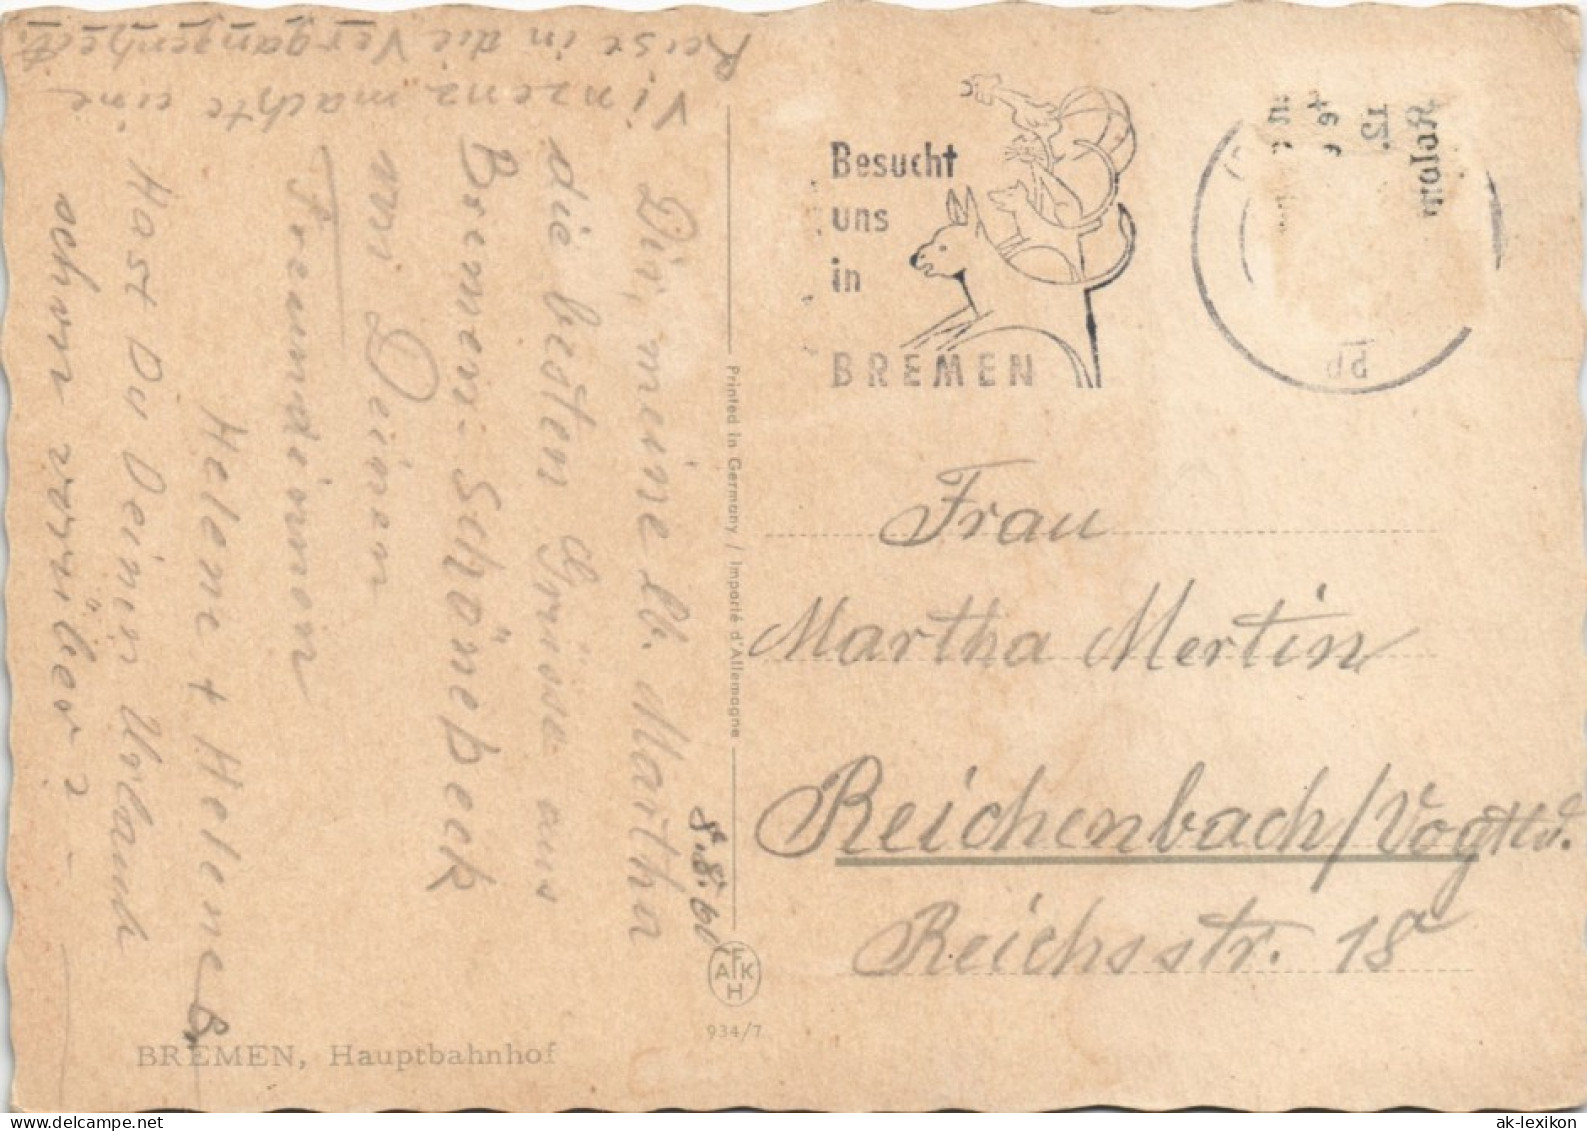 Vinzenz machte eine
Reise in die Vergangenheit
Dir, meine lb. Martha
die besten Grüsse aus
Bremen-Schönebeck
von Deinen
Freundinnen
Helene + Helene B.
Hast Du Deinen Urlaub
schon vorüber?
8.8.60
Printed in Germany / Importé d'Allemagne
AFKH
934/7
BREMEN, Hauptbahnhof
Besucht
uns
in
BREMEN
Frau
Martha Mertin
Reichenbach/Vogtld.
Reichsstr. 18
delcampe.net
ak-lexikon